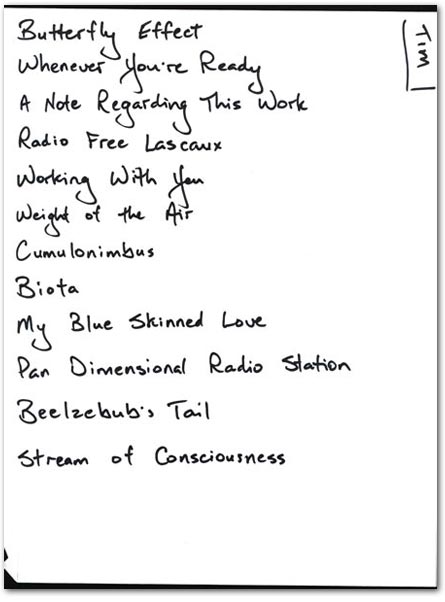 Butterfly Effect
Whenever You're Ready
A Note Regarding This Work
Radio Free Lascaux
Working With You
Weight of the Air
Cumulonimbus
Biota
My Blue Skinned Love
Pan Dimensional Radio Station
Beelzebub's Tail
Stream of Consciousness
Tim